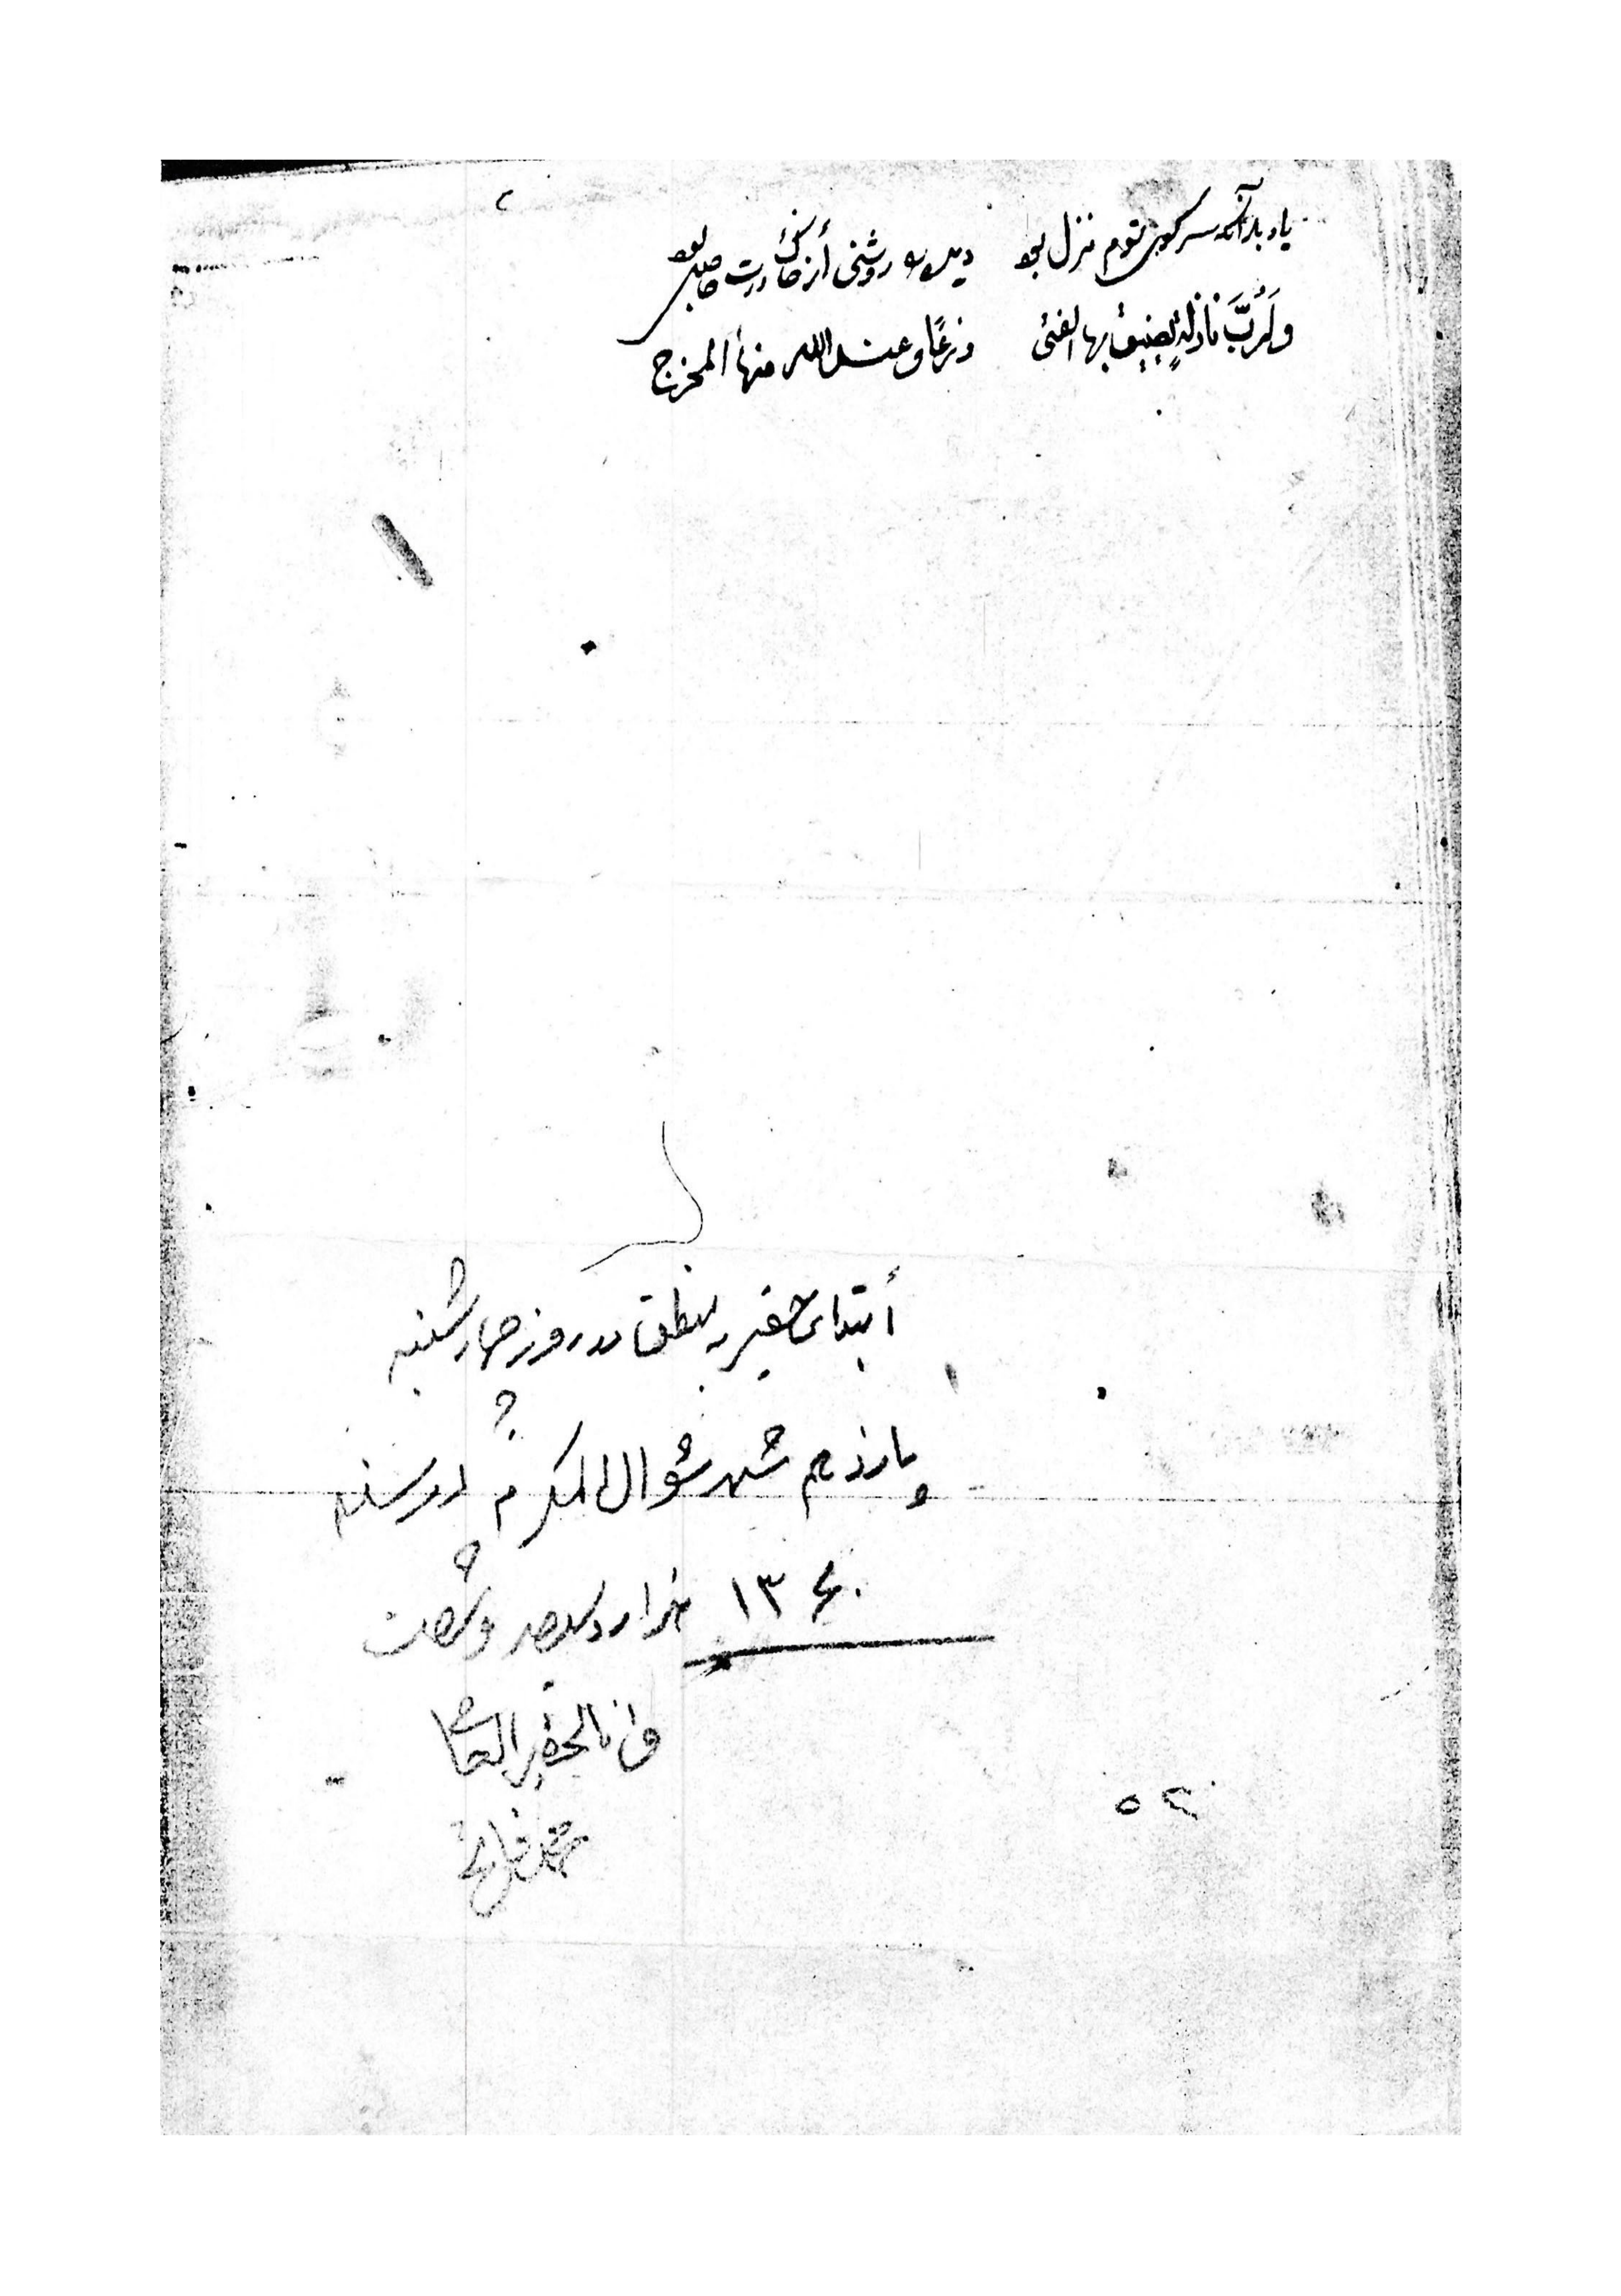 یاد باد آنکه سر کوی توم منزل بود دیده را روشنی أز خاک درت حاصل بود
وَلَرُبَّ نازلةٍ یضیق بها الفتی ذرعًا و عند الله منها المخرج
أبتدای حقیر به منطق در روز چهارشنبه
پانزدهم شهر شوال المکرم در سنه
۱۳۶۰ هزار و سیصد و شصت
و انا الحقیر العاصی
محمد
۵۲